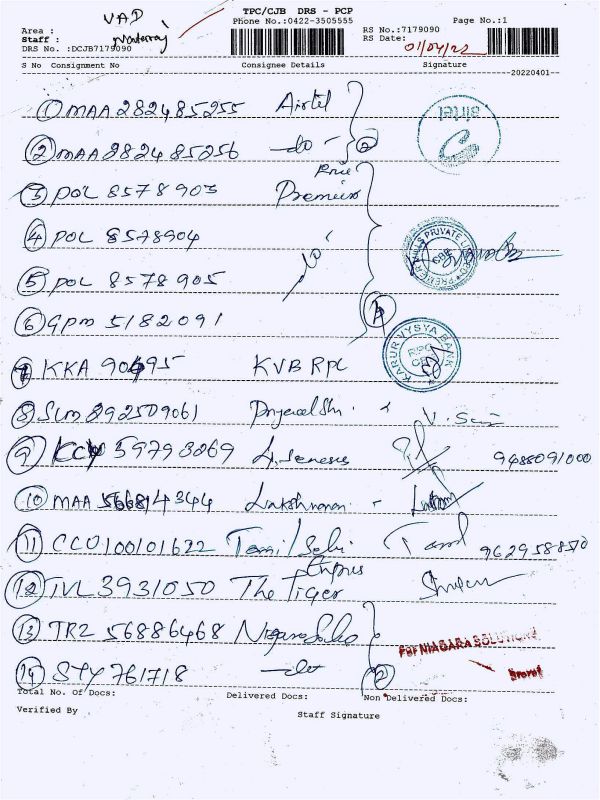 TPC/CJB DRS - PCP
VAD
Phone No.:0422-3505555
Page No.:1
Area :
RS No.:7179090
Staff :
RS Date: 01/04/22
DRS No. :DCJB7179090
S No Consignment No Consignee Details Signature
20220401
1 MAA 282485255 Airtel
airtel
2 MAA 282485256 -do- 2
3 POL 8578903 Premier
4 POL 8578904
PREMIER MILLS PRIVATE LIMITED
5 POL 8578905 -do-
6 GPM 5182091 4
KARUR VYSYA BANK
7 KKA 90495 KVB RPC
8 SLM 892509061 V.
9 59793069 9488091000
10 MAA 566814344 Lakshmanan -
11 CCU100101622 Tamil Selvi Tamil 9629588570
12 TVL 3931050 The Tiger
13 TRZ 56886468 Niagara
For NIAGARA SOLUTIONS
14 STY 761718 -do- 2
Total No. Of Docs: Delivered Docs: Non Delivered Docs:
Verified By
Staff Signature